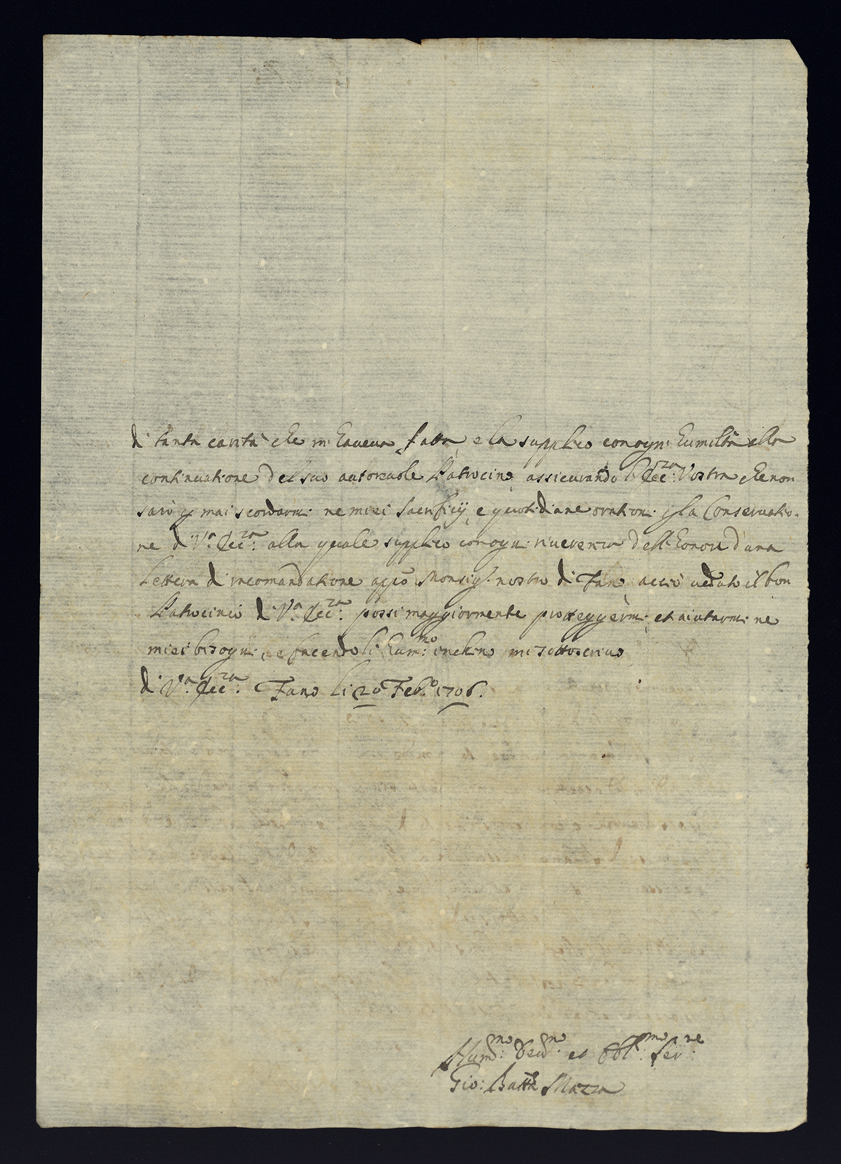 di tanta carità che m'haveva fatta e la supplico con ogni humiltà alla
continuatione del suo autorevole Patrocinio assicurando l'Ecc:za Vostra che non
sarò p mai scordarmi ne miei sacrificij e quotidiane orationi p la Conservatio-
ne di V:a Ecc:za alla quale supplico con ogni riverenza dell'honore d'una
lettera di racomandatione app:o Monsig:r nostro di Fano acciò veduto il bon
Patrocinio di V:a Ecc:za possi maggiormente proteggermi et aiutarmi ne
miei bisogni e facendoli hum:mo inchino mi sottoscrivo
di V:a Ecc:za Fano li 20 Feb:o 1706.
Hum:mo Dev:mo et Obl:mo Ser:re
Gio: Batta Mazza